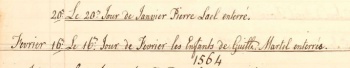 20e. Le 20me Jour de Janvier Pierre Lael enterré.
Février 16e. Le 16me Jour de Février les Enfants de Guille. Martel enterrés.
1564